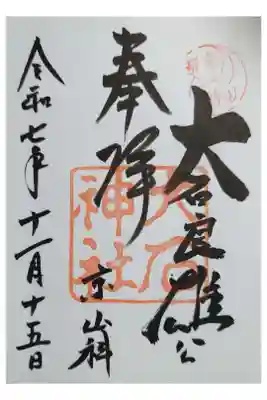 大石良雄公
奉拝
京山科
大石
神社
令和七年十一月十五日